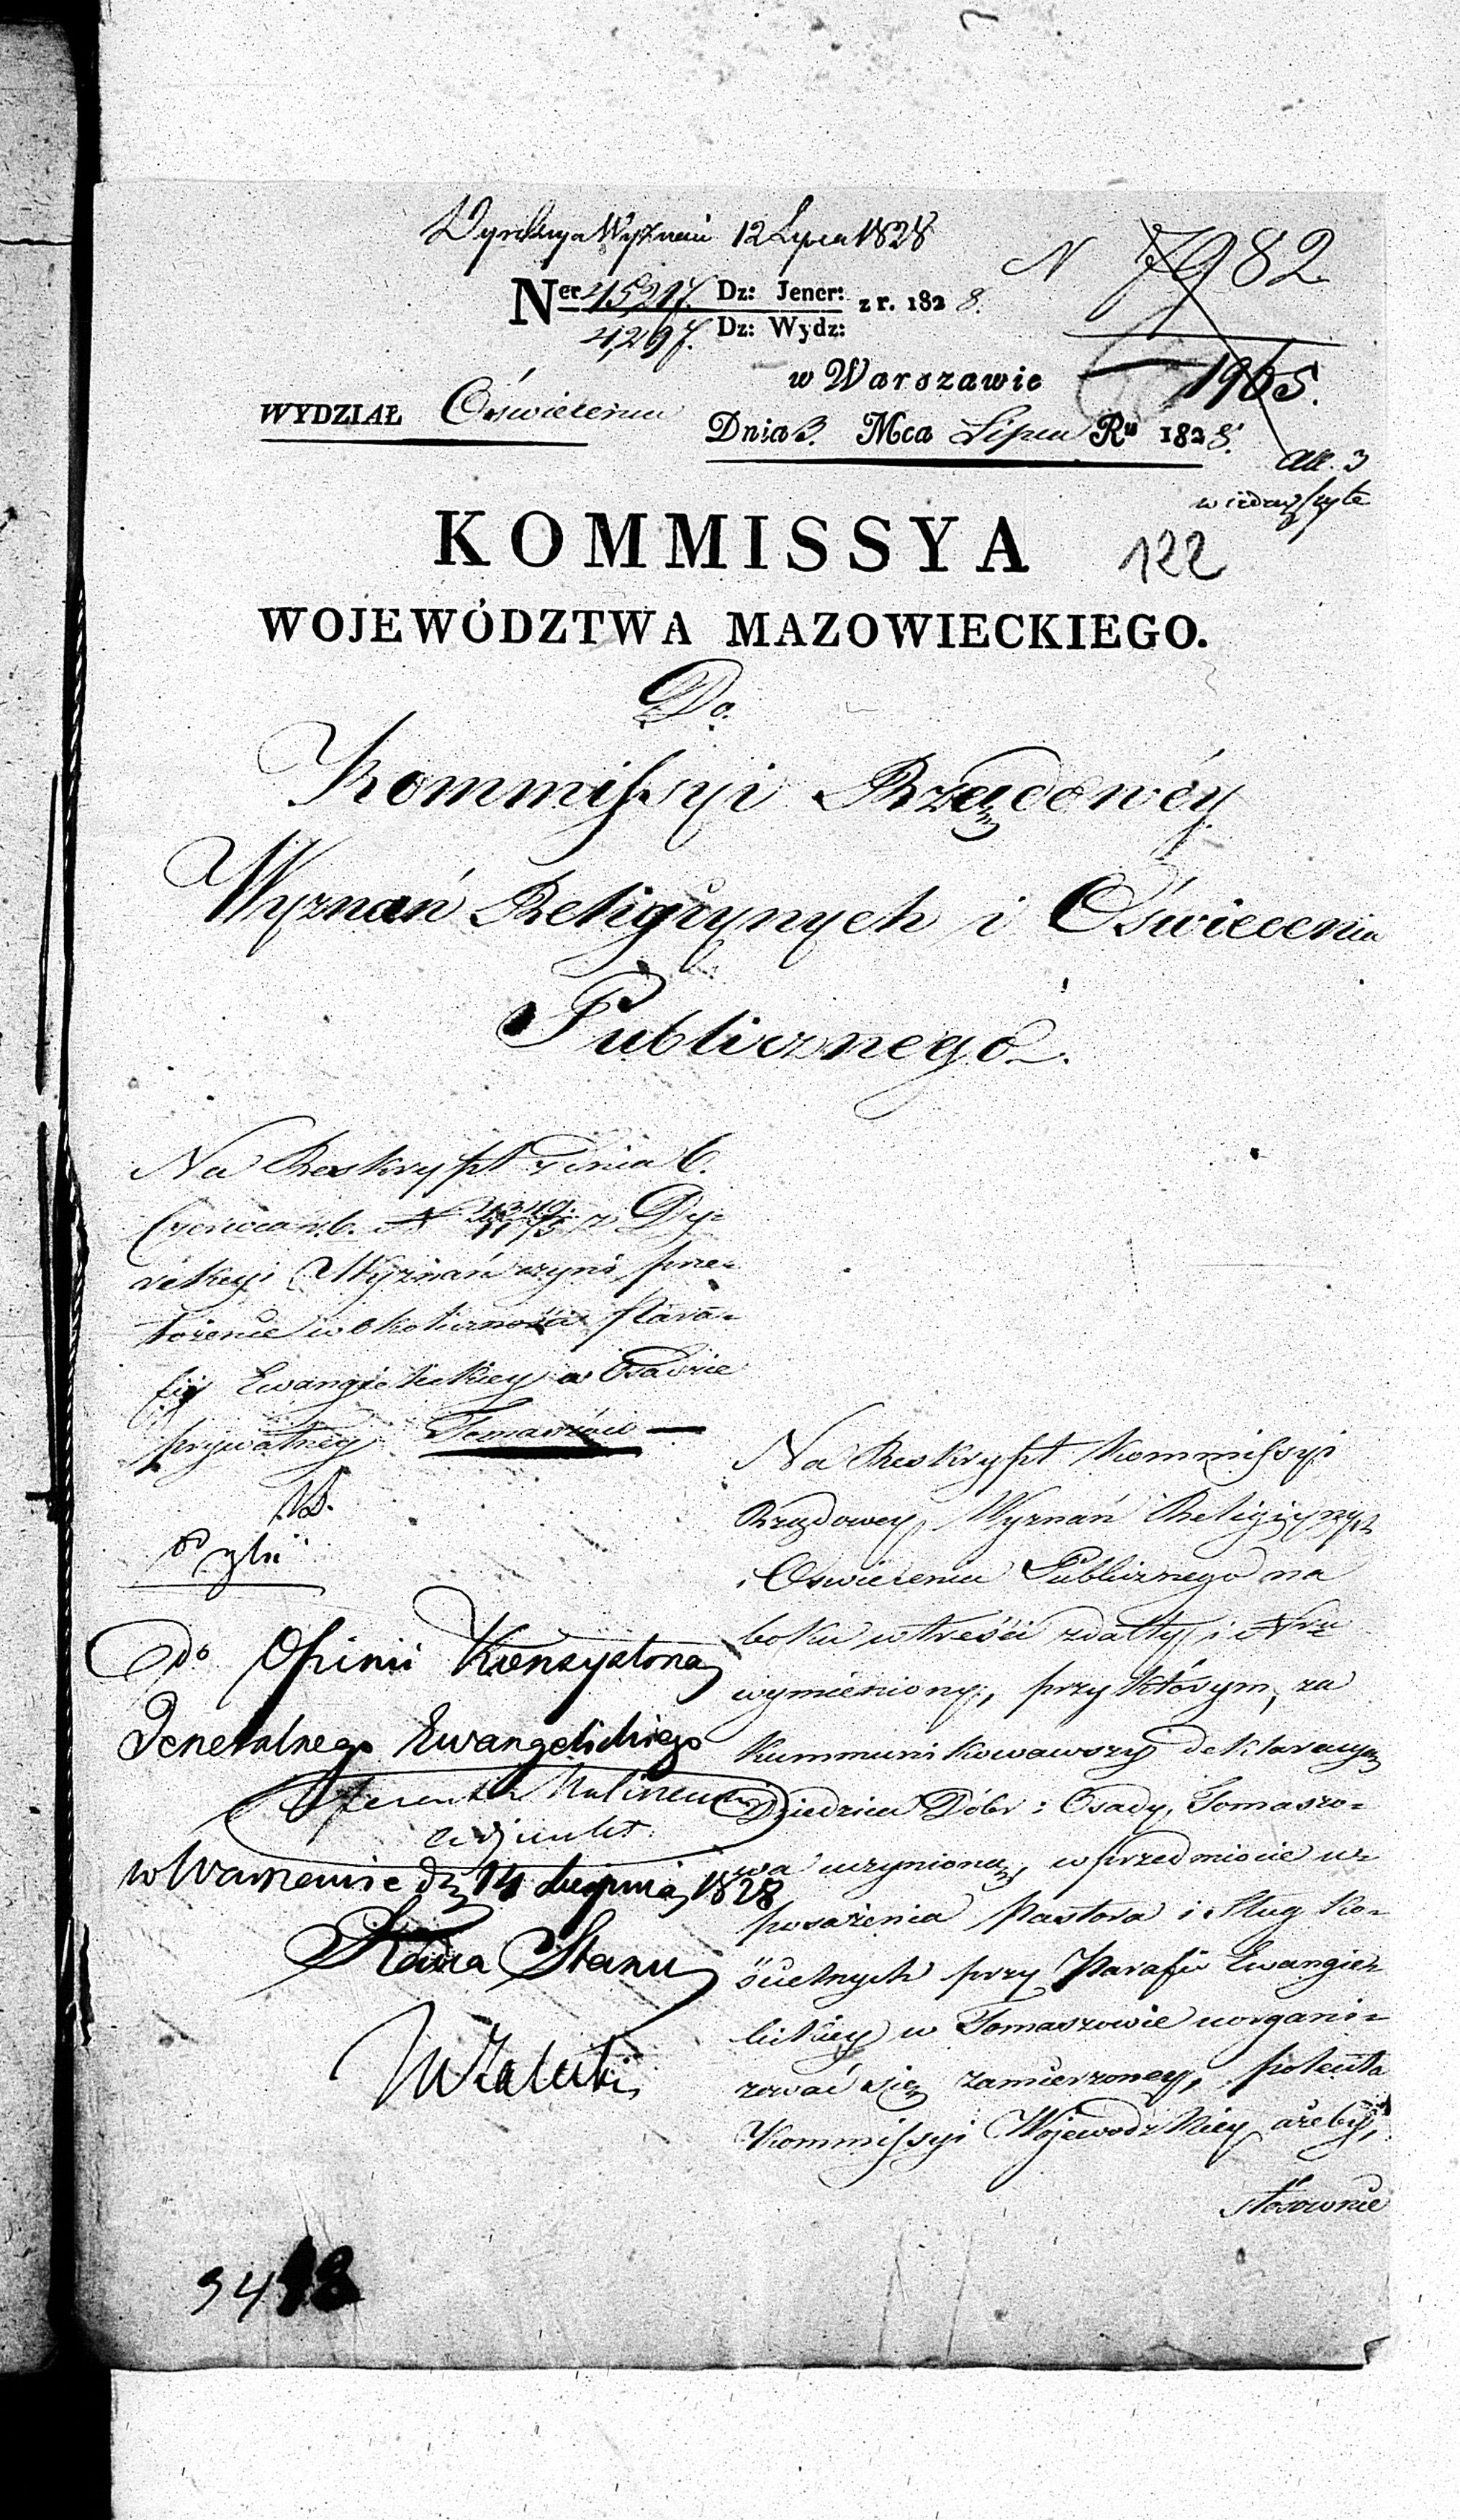 Dyrekcya Wyznań 12 Lipca 1828
N 7982
1965.
Ner 45217. Dz: Jener: z r. 1828.
4,297. Dz: Wydz:
w Warszawie
WYDZIAŁ Oświecenia
Dnia 3. Mca Lipca Ru 1828.
All. 3
w iedney szyte
122
KOMMISSYA
WOJEWÓDZTWA MAZOWIECKIEGO.
Do
Kommissyi Rządowéy
Wyznań Religiynych i Oświecenia
Publicznego.
Na Reskrypt z dnia 6.
Czerwca r. b. N z Dy-
rekcyi Wyznań czyni prze-
łożenie w okoliczności Para-
fij Ewangielickiey w Osadzie
prywatney Tomaszów
Do Opinii Konsystorza
Jeneralnego Ewangelickiego
w Warszawie d. 14 Sierpnia 1828
Radca Stanu
Na Reskrypt Kommissyi
Rządowey Wyznań Religiynych
i Oświecenia Publicznego na
boku w treści z daty i Nru
wymieniony, przy którym, za
kummunikowawszy deklaracyą
Dziedzica Dóbr i Osady Tomaszo-
wa uczynioną, w przedmiocie u-
posażenia Pastora i Sług Ko-
ścielnych przy Parafii Ewangie-
lickiey w Tomaszowie uorgani-
zować się zamierzoney, poleciła
Kommissyi Wojewodzkiey ażeby,
stosownie
3448